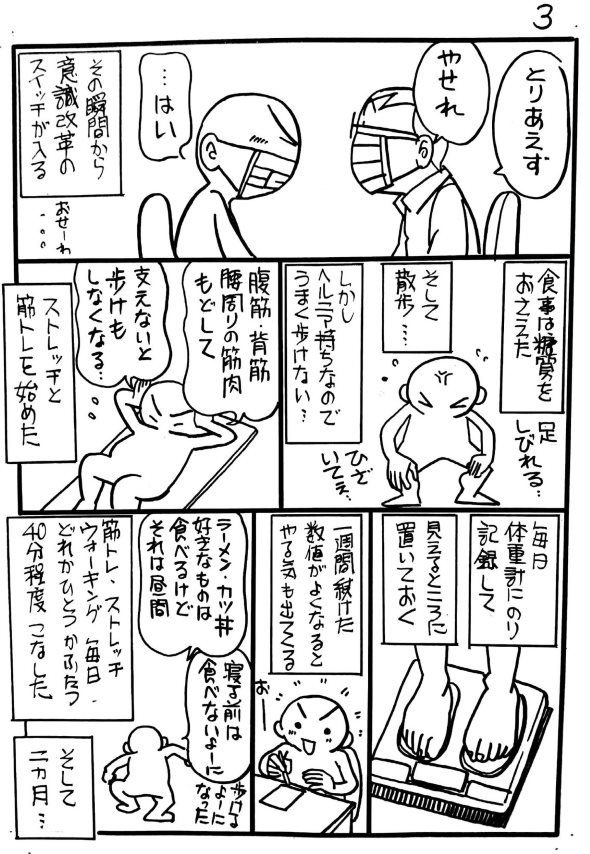 3
とりあえず
やせれ
…はい
その瞬間から
意識改革の
スイッチが入る
おせーわ
…
食事は糖質を
おさえた
そして
散歩…
しかし
ヘルニア持ちなので
うまく歩けない…
足
しびれる…
ひざ
いてえ…
腹筋・背筋
腰周りの筋肉
もどして
支えないと
歩けも
しなくなる…
ストレッチと
筋トレを始めた
毎日
体重計にのり
記録して
見えるところに
置いておく
一週間続けた
数値がよくなると
やる気も出てくる
おー
ラーメン・カツ丼
好きなものは
食べるけど
それは昼間
寝る前は
食べないよーに
歩ける
よーに
なった
筋トレ、ストレッチ
ウォーキング 毎日
どれかひとつかふたつ
40分程度こなした
そして
二カ月…